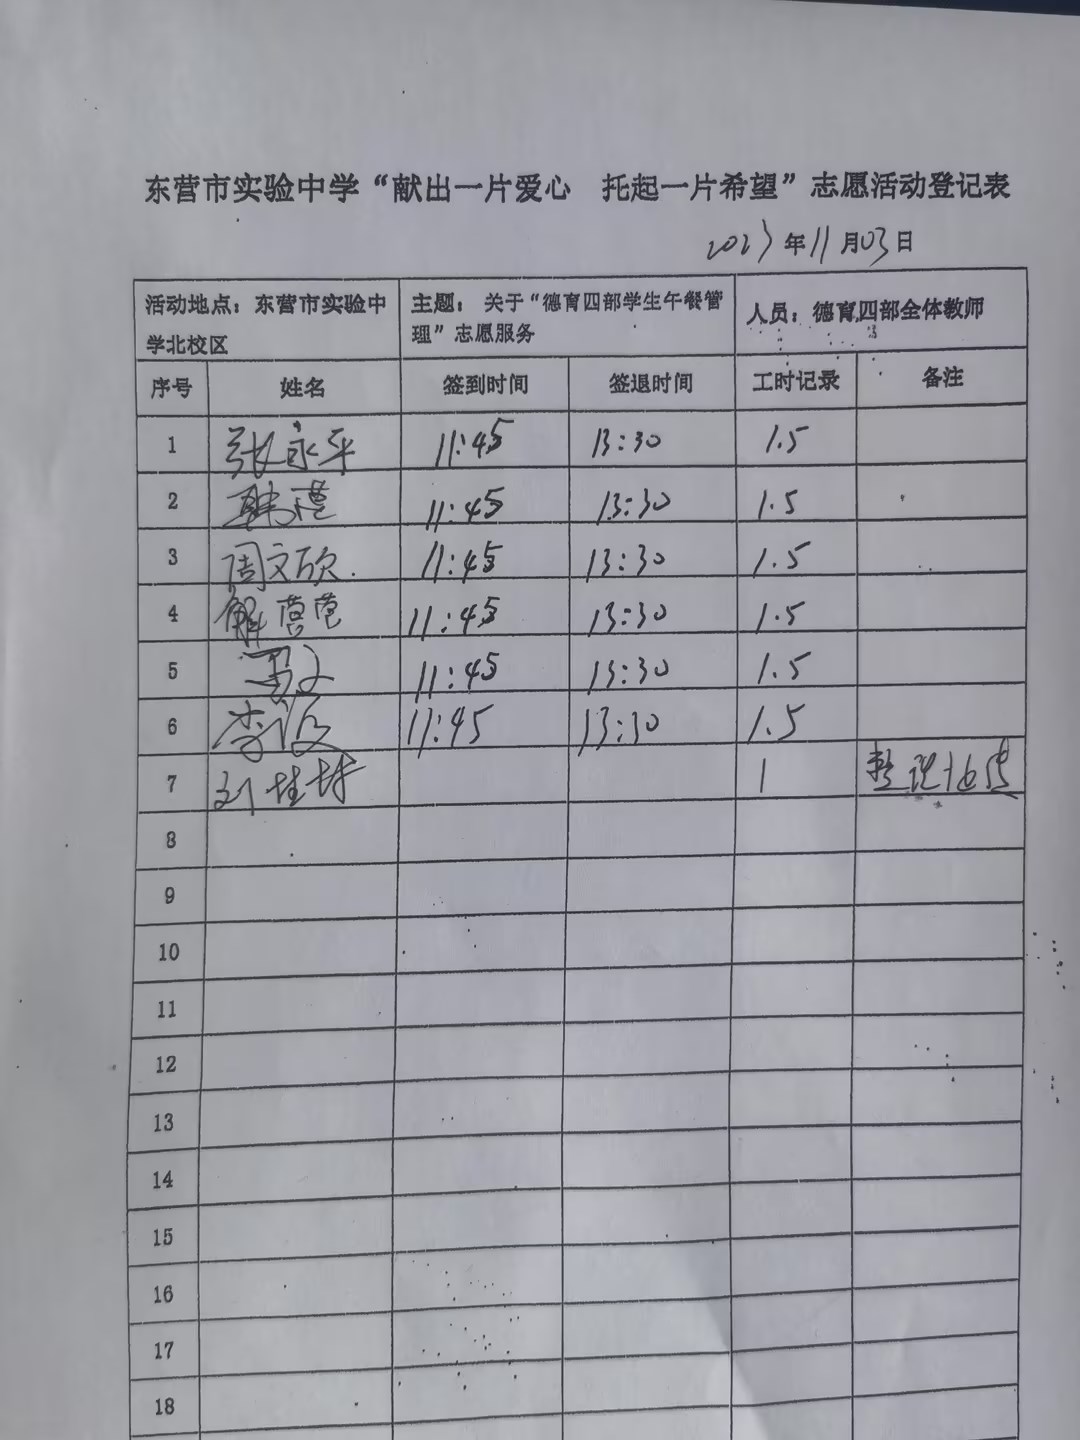 东营市实验中学“献出一片爱心 托起一片希望”志愿活动登记表
2023年11月03日
活动地点：东营市实验中学北校区 主题：关于“德育四部学生午餐管理”志愿服务 人员：德育四部全体教师
序号 姓名 签到时间 签退时间 工时记录 备注
1 张永平 11:45 13:30 1.5
2 韩 11:45 13:30 1.5
3 周文欣 11:45 13:30 1.5
4 解营营 11:45 13:30 1.5
5 11:45 13:30 1.5
6 李 11:45 13:30 1.5
7 刘 1
8
9
10
11
12
13
14
15
16
17
18